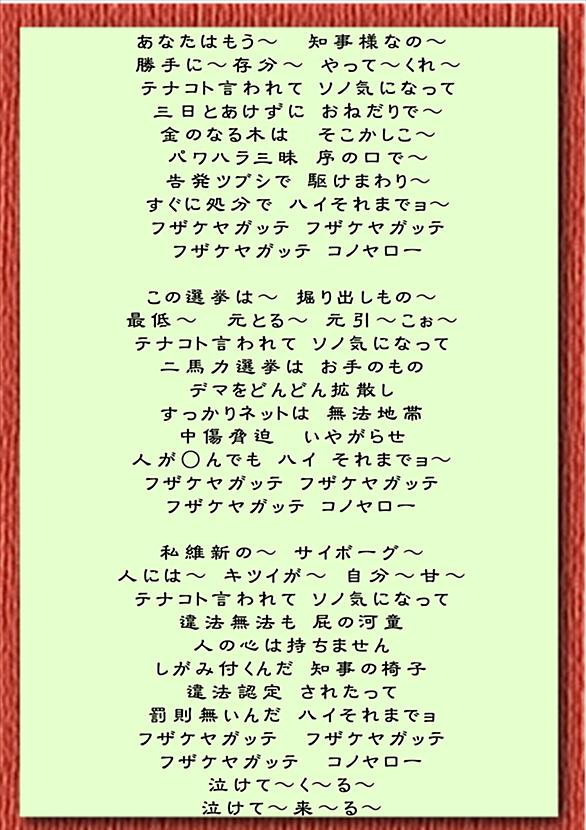 あなたはもう～　知事様なの～
勝手に～存分～　やって～くれ～
テナコト言われて　ソノ気になって
三日とあけずに　おねだりで～
金のなる木は　そこかしこ～
パワハラ三昧　序の口で～
告発ツブシで　駆けまわり～
すぐに処分で　ハイそれまでョ～
フザケヤガッテ　フザケヤガッテ
フザケヤガッテ　コノヤロー
この選挙は～　掘り出しもの～
最低～　元とる～　元引～こぉ～
テナコト言われて　ソノ気になって
二馬力選挙は　お手のもの
デマをどんどん拡散し
すっかりネットは　無法地帯
中傷脅迫　いやがらせ
人が〇んでも　ハイ　それまでョ～
フザケヤガッテ　フザケヤガッテ
フザケヤガッテ　コノヤロー
私維新の～　サイボーグ～
人には～　キツイが～　自分～甘～
テナコト言われて　ソノ気になって
違法無法も　屁の河童
人の心は持ちません
しがみ付くんだ　知事の椅子
違法認定　されたって
罰則無いんだ　ハイそれまでョ
フザケヤガッテ　フザケヤガッテ
フザケヤガッテ　コノヤロー
泣けて～く～る～
泣けて～来～る～